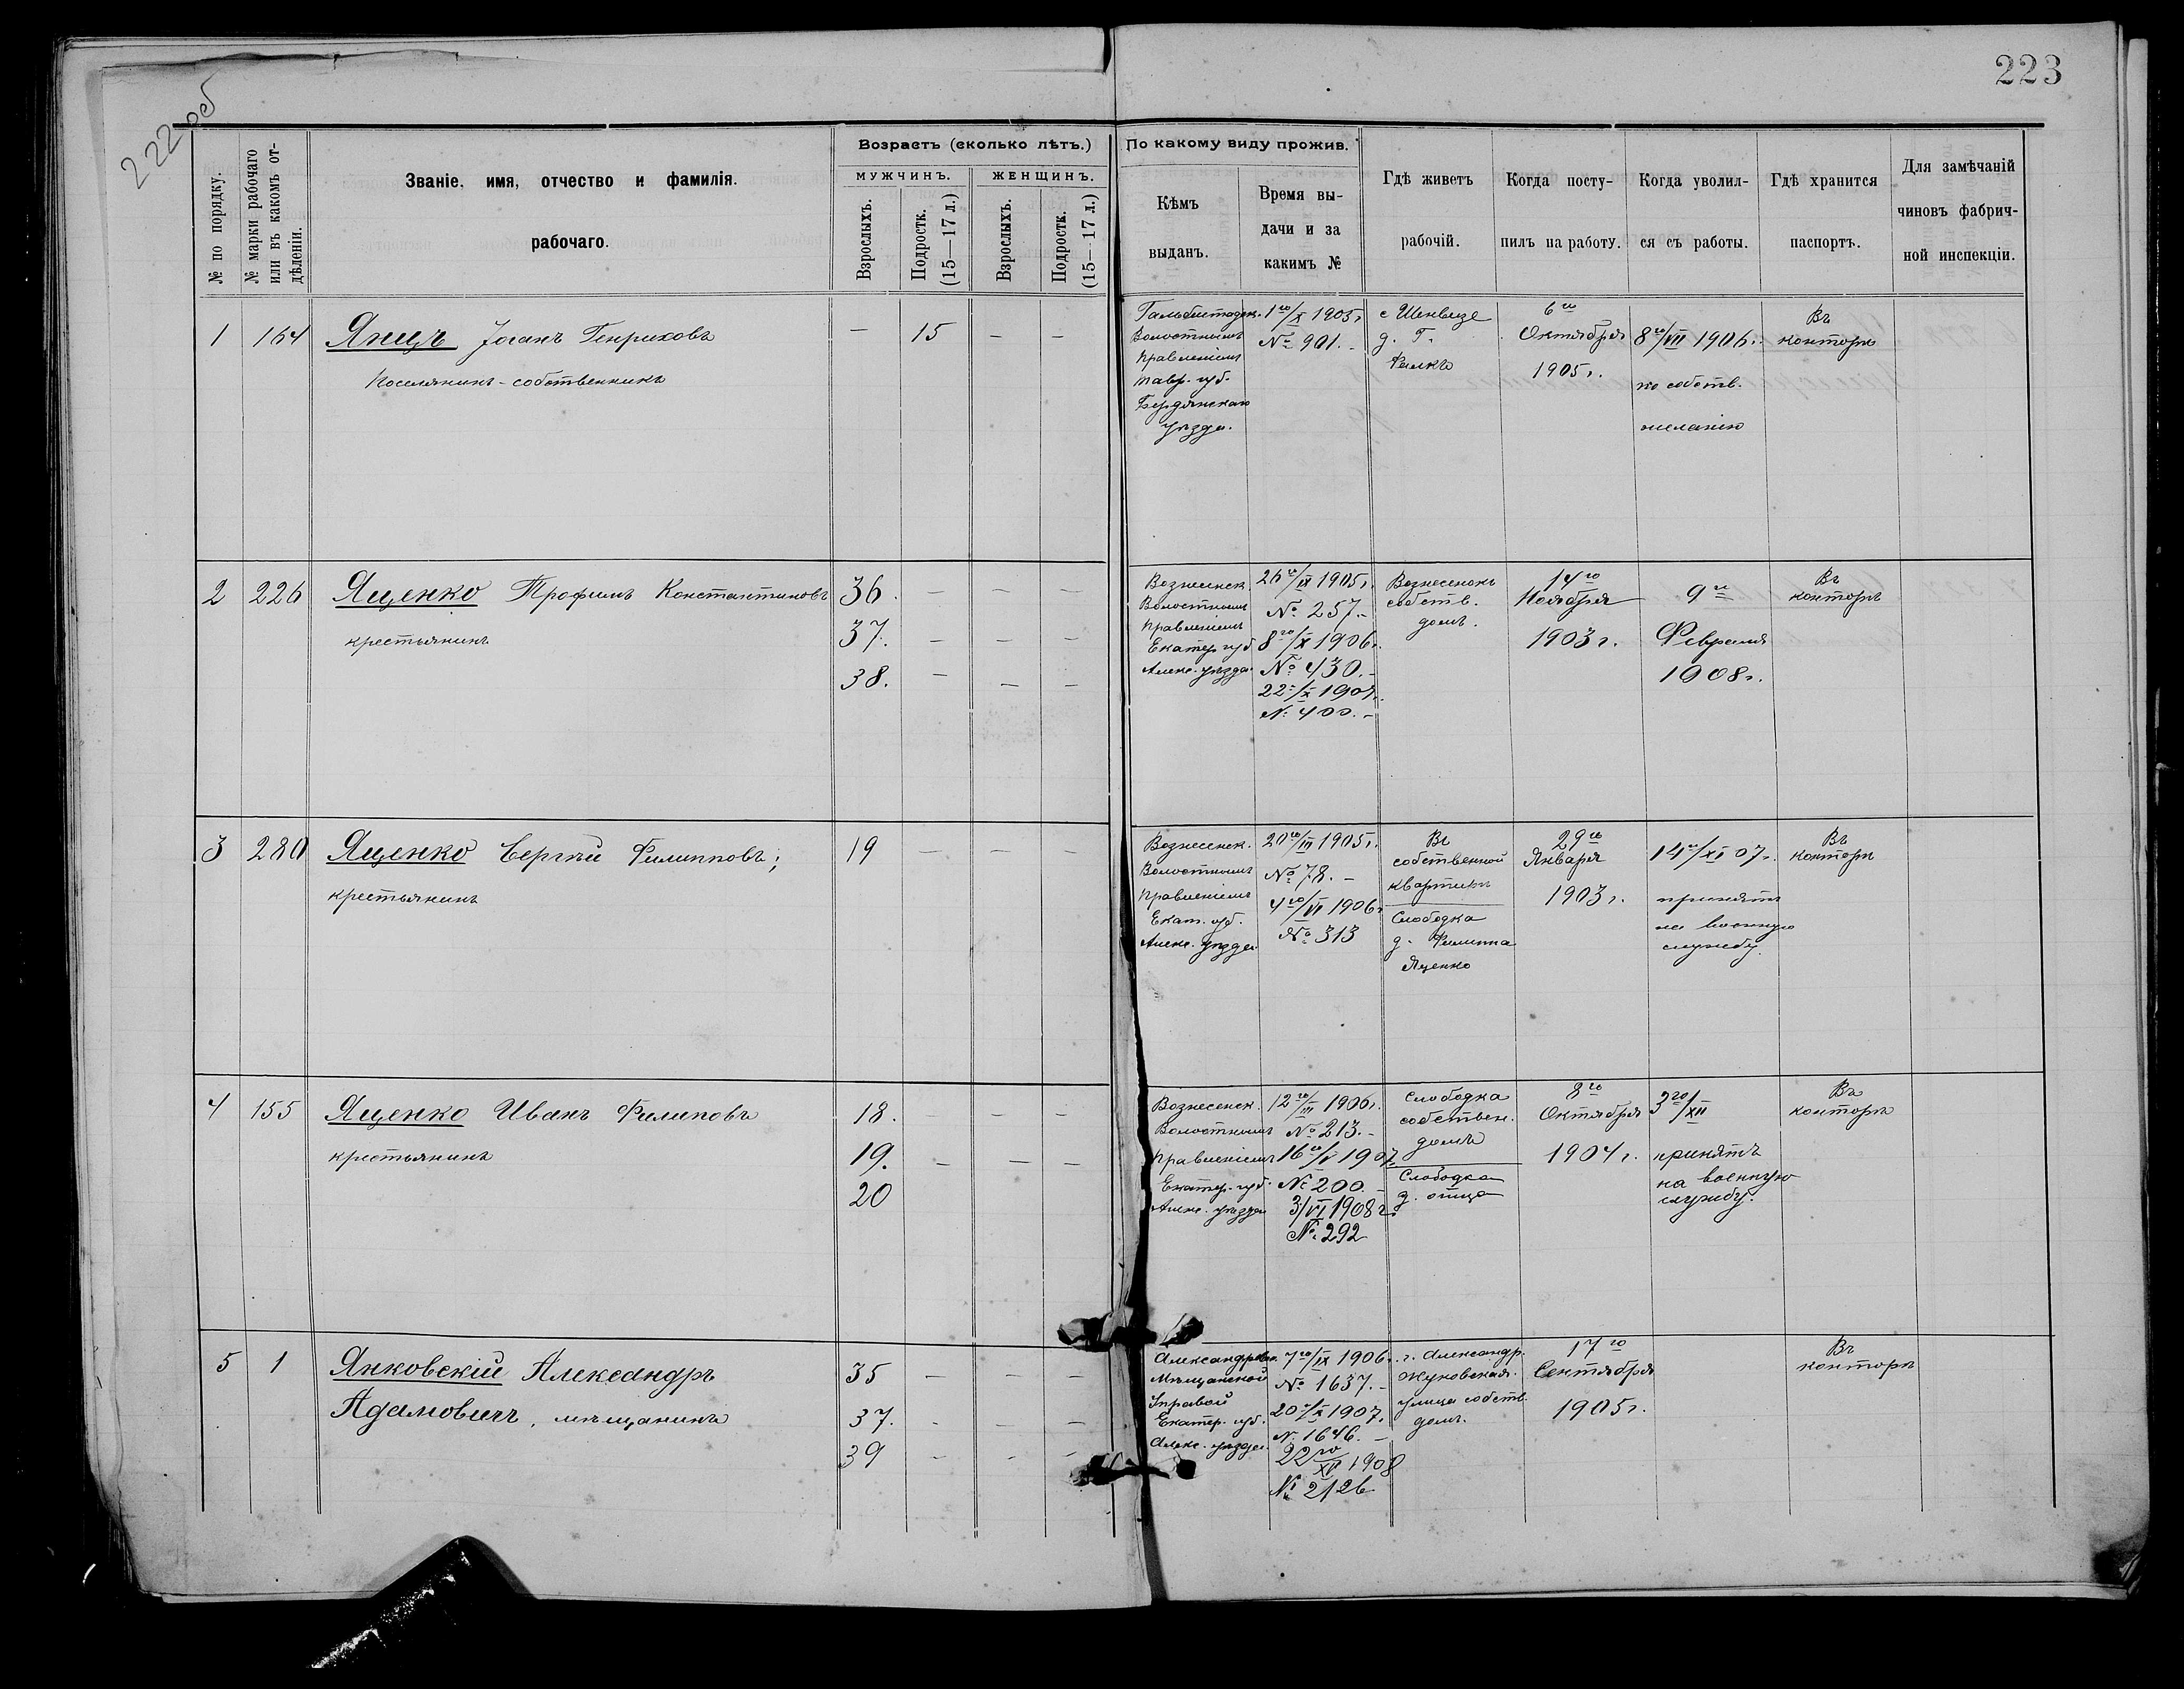 223
222 об
№ по порядку.
№ марки рабочаго
или въ какомъ от-
дѣленіи.
Званіе, имя, отчество и фамилія.
рабочаго.
Возрастъ (сколько лѣтъ.)
МУЖЧИНЪ.
ЖЕНЩИНЪ.
Взрослыхъ.
Подростк.
(15—17 л.)
Взрослыхъ.
Подростк.
(15—17 л.)
По какому виду прожив.
Кѣмъ
выданъ.
Время вы-
дачи и за
какимъ №
Гдѣ живетъ
рабочій.
Когда посту-
пилъ на работу.
Когда уволил-
ся съ работы.
Гдѣ хранится
паспортъ.
Для замѣчаній
чиновъ фабрич-
ной инспекціи.
1
164
Янцъ Іоганъ Генриховъ
Поселянинъ-собственникъ
— 15 — —
Гальбштадск.
Волостнымъ
Правленіемъ
Тавр. губ.
Бердянскаго
уѣзда.
1го/X 1905 г.
№ 901.-
с Шенвизе
д. Г.
6го
Октября
1905 г.
8го/VII 1906 г.
по собств.
желанію
Въ
конторѣ
2
226
Яценко Трофимъ Константиновъ
крестьянинъ
36. — — —
37. — — —
38. — — —
Вознесенск.
Волостнымъ
Правленіемъ
Екатер. губ.
Алекс. уѣзда.
26го/IX 1905 г.
№ 257.-
8го/X 1906 г.
№ 430.-
22го/X 1907 г.
№ 400.-
Вознесенокъ
собств.
домъ.
14го
Ноября
1903 г.
9го
Февраля
1908 г.
Въ
конторѣ
3
280
Яценко Сергѣй Филипповъ;
крестьянинъ
19 — — —
Вознесенск.
Волостнымъ
Правленіемъ
Екат. губ.
Алекс. уѣзда
20го/III 1905 г.
№ 78.-
4го/VI 1906 г.
№ 313
Въ
собственной
квартирѣ
Слободка
д. Филиппа
Яценко
29го
Января
1903 г.
14го/XI 07 г.
принятъ
на военную
службу.
Въ
конторѣ
4
155
Яценко Иванъ Филиповъ
крестьянинъ
18. — — —
19. — — —
20
Вознесенск.
Волостнымъ
Правленіемъ
Екатер. губ.
Алекс. уѣзда
12го/III 1906 г.
№ 213.-
16го/V 1907.
№ 200.-
3/VI 1908 г.
№ 292
Слободка
собствен.
домъ
Слободка
д. отца
8го
Октября
1904 г.
3го/XII
принятъ
на военную
службу.
Въ
конторѣ
5
1
Янковскій Александръ
Адамовичъ, мѣщанинъ
35 — — —
37. — — —
39 — — —
Александровск.
Мѣщанской
Управой
Екатер. губ.
Алекс. уѣзда.
7го/IX 1906 г.
№ 1637.-
20го/X 1907 г.
№ 1646.-
22го
1908
№ 2126
г. Александр.
Жуковская.
улица собств.
домъ.
17го
Сентября
1905 г.
Въ
конторѣ